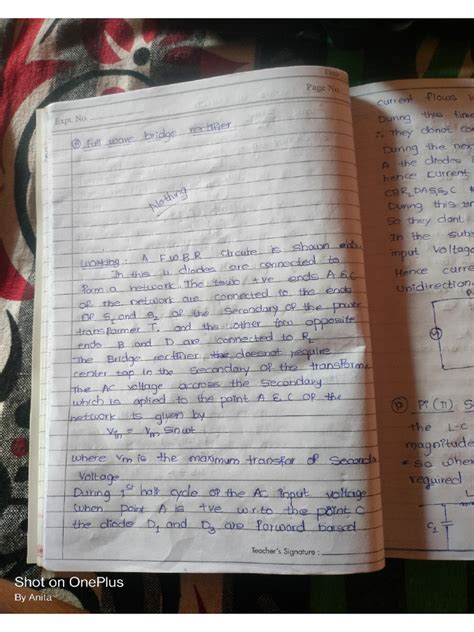 Date
Expt. No.
Page No.
Full wave bridge rectifier
Nothing
Working: A F.W.B.R Circute is shown
In this 4 diodes are connected to
form a network. The two +ve ends A & C
of the network are connected to the ends
of S1 and S2 of the Secondary of the power
transformer T. and this other two opposite
ends B and D are connected to RL
The Bridge rectifier, the doesnot require
center tap in the Secondary of the transforme
The AC voltage across the secondary
which is aplied to the point A & C of the
network is given by
Vin = Vm sinωt
where Vm is the maximum transfor of Seconda
Voltage
During 1st half cycle of the AC input voltage
when point A is +ve w.r.to the point C
the diode D1 and D3 are forward baised
Teacher's Signature :
current flows
During this time
∴ They donot
During the nex
A the diodes
hence current
During this
So they dont
In the subs
input voltage
Hence curre
Unidirection
Pi (π) S
the L-C
magnitude
* So when
required
C1
Shot on OnePlus
By Anita